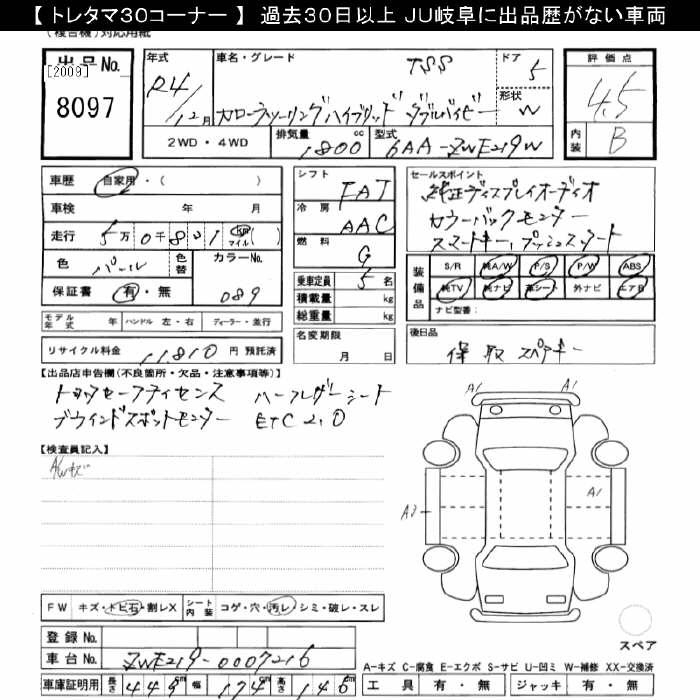 【 トレタマ30コーナー 】 過去30日以上 JU岐阜に出品歴がない車両
(複合機)対応用紙
出品No.
[2009]
8097
年式
R4/12月
車名・グレード
TSS
カローラツーリングハイブリッド ダブルバイビー
ドア
5
形状
W
2WD・4WD
排気量
1800
cc
型式
6AA-ZWE219W
評価点
4.5
内装
B
車歴
自家用・( )
車検
年 月
走行
5万0千801
km
マイル
( )
色
パール
色替
カラーNo.
089
保証書
有・無
モデル年式
年
ハンドル 左・右
ディーラー・並行
リサイクル料金
11,810
円 預託済
シフト
FAT
冷房
AAC
燃料
G
乗車定員
5
名
積載量
kg
総重量
kg
名変期限
月 日
セールスポイント
純正ディスプレイオーディオ
カラーバックモニター
スマートキー、プッシュスタート
装備品
S/R
純A/W
P/S
P/W
ABS
純TV
純ナビ
革シート
外ナビ
エアB
ナビ型番:
後日品
保 取 スペアキー
【出品店申告欄(不良箇所・欠品・注意事項等)】
トヨタセーフティセンス ハーフレザーシート
ブラインドスポットモニター ETC2.0
【検査員記入】
A1
A1
A1
A2
FW
キズ・トビ石・割レX
シート内装
コゲ・穴・汚レ・シミ・破レ・スレ
登録No.
車台No.
ZWE219-0007216
車庫証明用
長さ
449
幅
174
高さ
146
スペア
A-キズ C-腐食 E-エクボ S-サビ U-凹ミ W-補修 XX-交換済
工具
有・無
ジャッキ
有・無